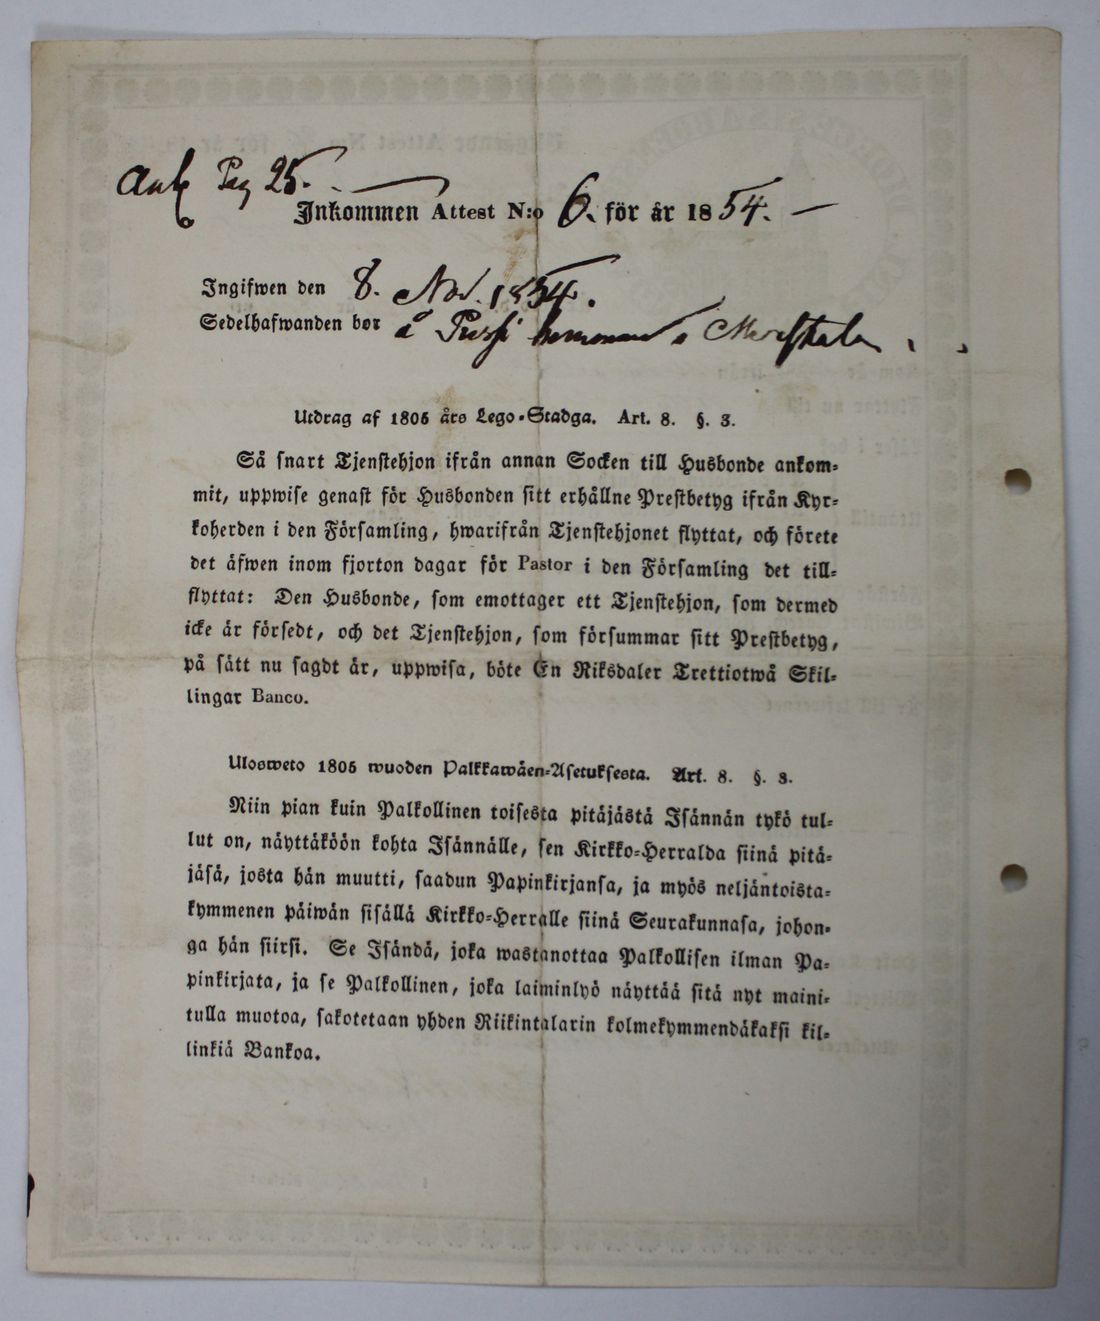 Pag 25.
Inkommen Attest N:o 6. för år 1854.
Ingifwen den 8. Nov. 1854.
Sedelhafwanden bor å
Utdrag af 1805 års Lego-Stadga. Art. 8. §. 3.
Så snart Tjenstehjon ifrån annan Socken till Husbonde ankom-
mit, uppwise genast för Husbonden sitt erhållne Prestbetyg ifrån Kyr-
koherden i den Församling, hwarifrån Tjenstehjonet flyttat, och förete
det äfwen inom fjorton dagar för Pastor i den Församling det till-
flyttat: Den Husbonde, som emottager ett Tjenstehjon, som dermed
icke är försedt, och det Tjenstehjon, som försummar sitt Prestbetyg,
på sätt nu sagdt är, uppwisa, böte En Riksdaler Trettiotwå Skil-
lingar Banco.
Ulosweto 1805 wuoden Palkkawäen-Asetuksesta. Art. 8. §. 3.
Niin pian kuin Palkollinen toisesta pitäjästä Isännän tykö tul-
lut on, näyttäköön kohta Isännälle, sen Kirkko-Herralda siinä pitä-
jäsä, josta hän muutti, saadun Papinkirjansa, ja myös neljäntoista-
kymmenen päiwän sisällä Kirkko-Herralle siinä Seurakunnasa, johon-
ga hän siirsi. Se Isändä, joka wastanottaa Palkollisen ilman Pa-
pinkirjata, ja se Palkollinen, joka laiminlyö näyttää sitä nyt maini-
tulla muotoa, sakotetaan yhden Riikintalarin kolmekymmendäkaksi kil-
linkiä Bankoa.